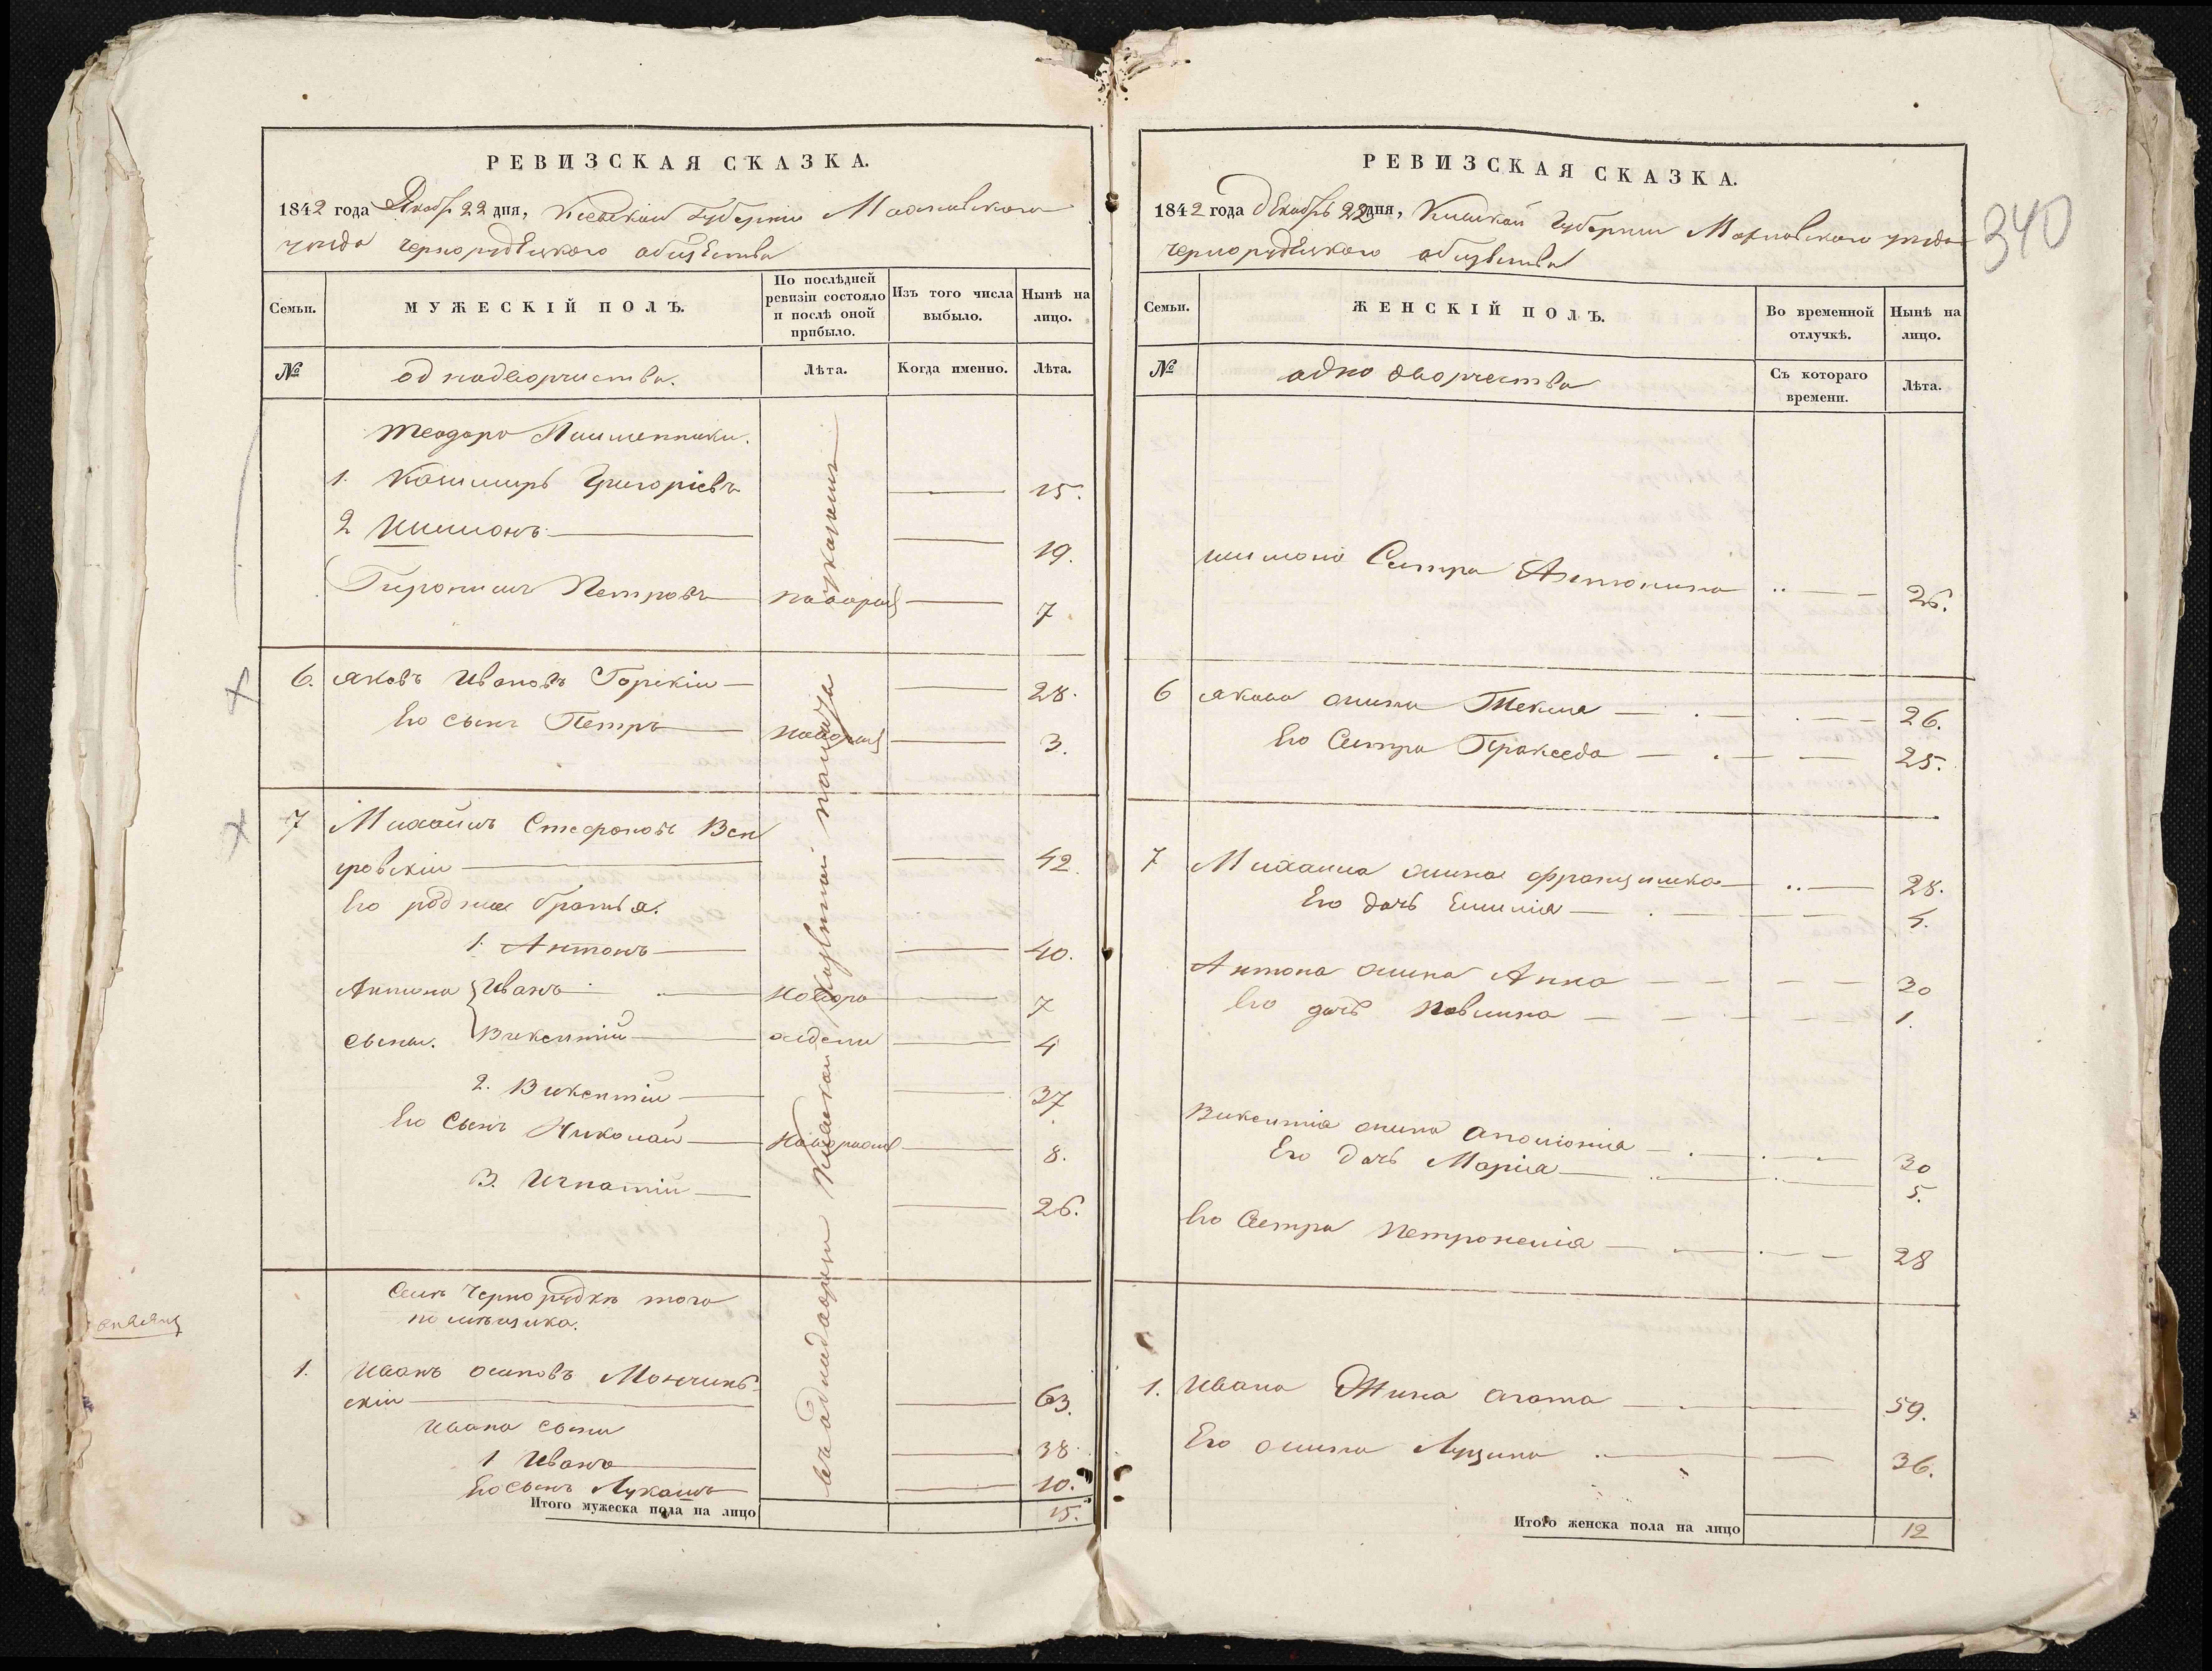 РЕВИЗСКАЯ СКАЗКА.
1842 года Декабр 22 дня, Киевской Губернiи Махновского
уезда Чернорудецкого общества
Семьи.
МУЖЕСКIЙ ПОЛЪ.
По послѣдней ревизiи состояло и послѣ оной прибыло.
Изъ того числа выбыло.
Нынѣ на лицо.
№
однадворчиства.
Лѣта.
Когда именно.
Лѣта.
Теодора
1. Казимиръ Григорiевъ 15.
2 Шимонъ 19.
Гиронимъ Петровъ 7
6. Яковъ Ивановъ Горскiи 28.
Его сынъ Петръ 3.
7 Михаилъ Стефановъ Вен
гровскiи 42
Его родные братья.
1. Антонъ 40.
Антона Иванъ новоро 7
сыны. Викентiй ждены 4
2. Викентiи 37
Его Сынъ Николай 8.
3. Игнатiи 26.
Села Чернорудки того
помѣщика.
1. Иванъ осиповъ
скiи 63.
Ивана сыны
1 Иванъ 38
Его сынъ Лукашъ 10.
Итого мужеска пола на лицо 15.
РЕВИЗСКАЯ СКАЗКА.
1842 года Декабръ 22 дня, Киевской Губернии Махновского уезда
Чернорудецкого общества
340
Семьи.
ЖЕНСКIЙ ПОЛЪ.
Во временной отлучкѣ.
Нынѣ на лицо.
№
одно дворчества
Съ котораго времени.
Лѣта.
шимона Сестра Антонина 26.
6 Якова жина Текля 26.
Его Сестра Пракседа 25.
7 Михаила жина францишка 28.
Его дочь Емилiя 4.
Антона жина Анна 30
Его дочь Павлина 1.
Викентiя жина аполонiя 30
Его дочь Марiя 5.
Его Сестра Петронелiя 28
1. Ивана Жина агата 59.
Его жина Луцина 36.
Итого женска пола на лицо 12